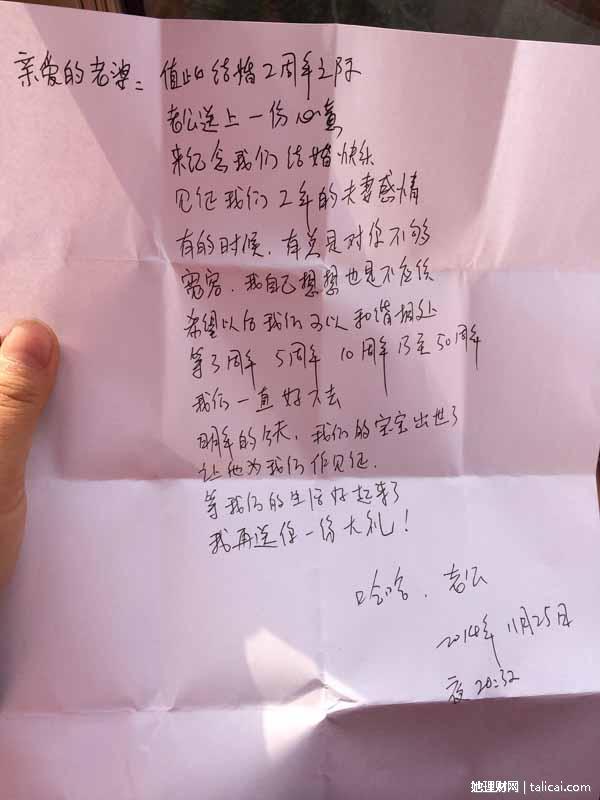 亲爱的老婆：值此结婚2周年之际
老公送上一份心意
来纪念我们结婚快乐
见证我们2年的夫妻感情
有的时候，有总是对你不够
宽容，我自己想想也是不应该
希望以后我们可以和谐相处
等3周年 5周年 10周年乃至50周年
我们一直好下去
明年的今天，我们的宝宝出世了
让他为我们作见证.
等我们的生活好起来了
我再送你一份大礼！
哈哈. 老公
2014年11月25日
夜20:32
她理财网 | talicai.com